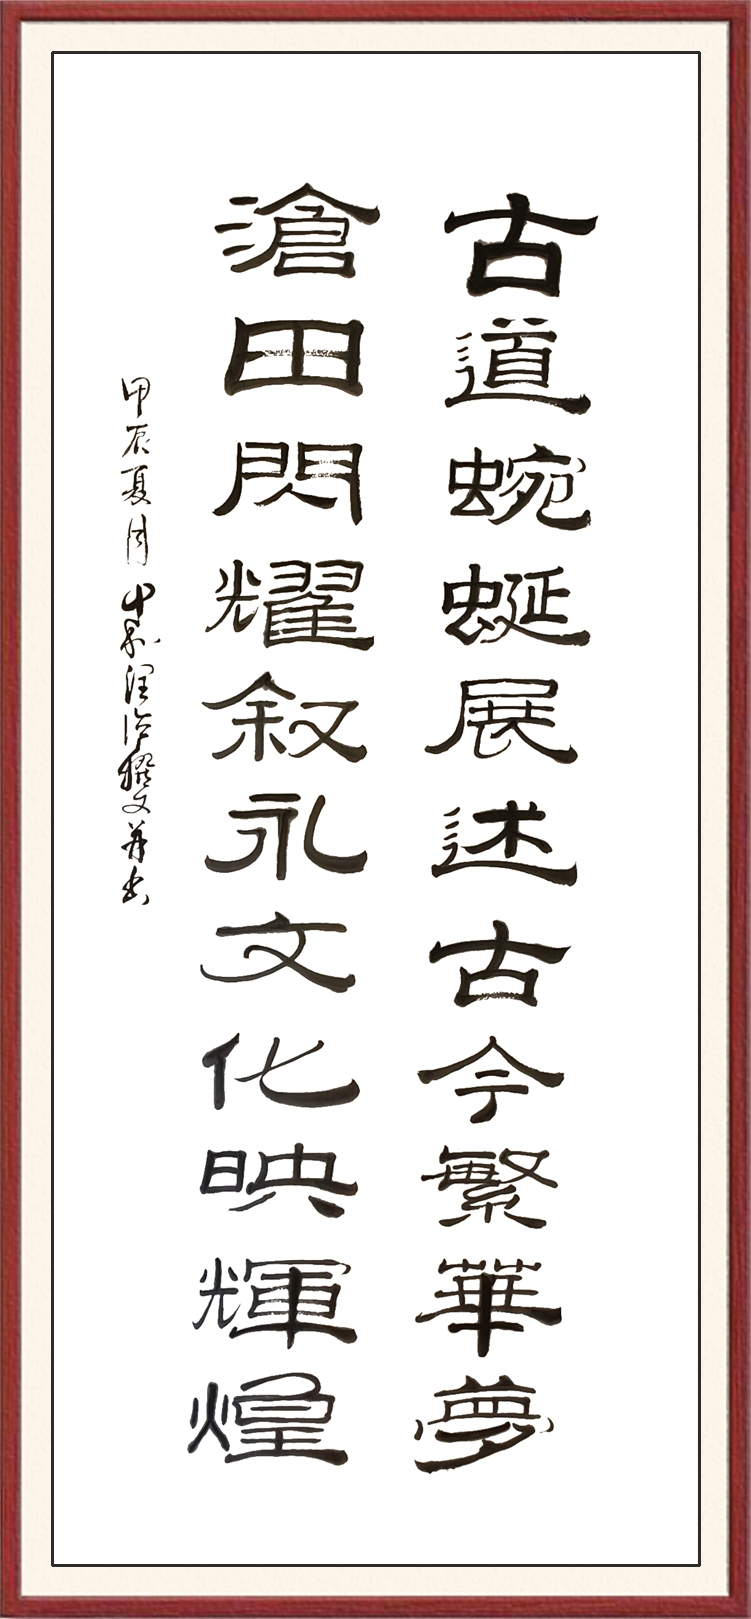 古道蜿蜒展述古今繁華夢
滄田閃耀叙永文化映輝煌
甲辰夏月 撰文并书